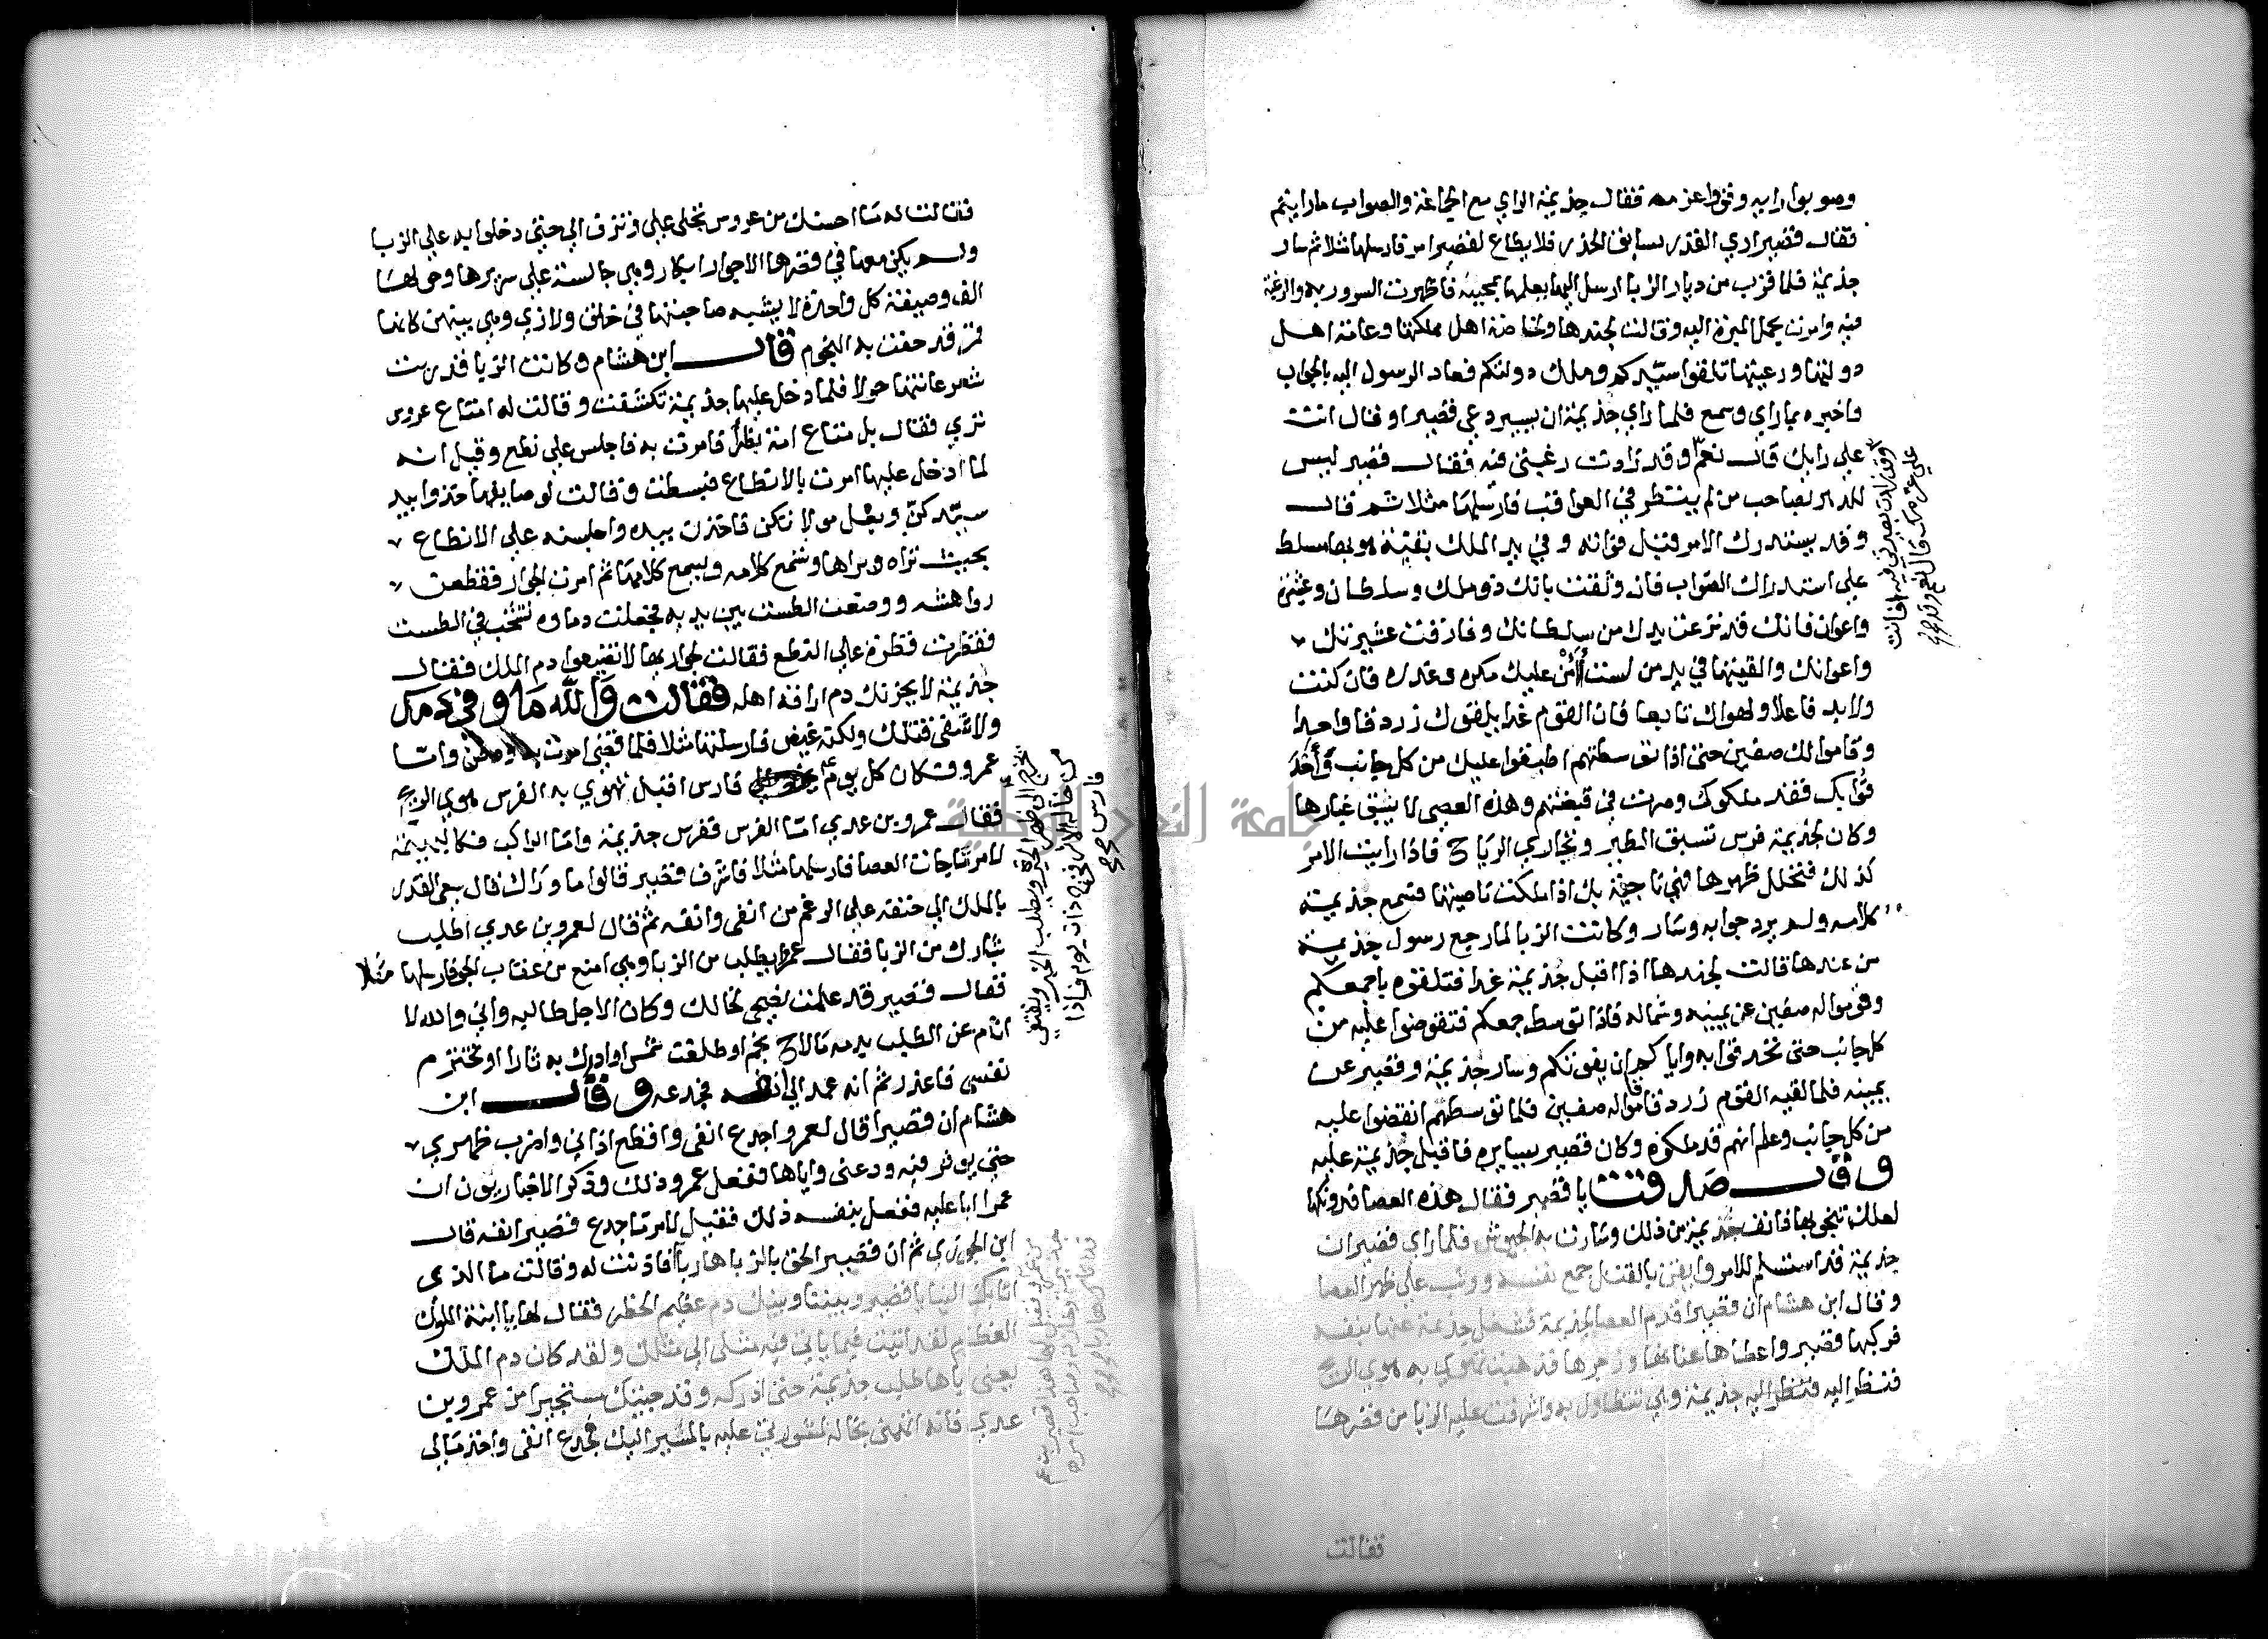 وصوبوا رايه وقووا عزمه فقال جذيمة الراي مع الجماعة والصواب ما رايتم
فقال قصير اري القدر يسابق الحذر فلا يطاع لقصير امر فارسلها مثلا ثم سار
جذيمة فلما قرب من ديار الزبا ارسل اليها يعلمها بمجيئه فاظهرت السرور به والرغبة
فيه وامرت بحمل الميرة اليه وقالت لجندها ولخاصة اهل مملكتها وعامة اهل
دولتها ورعيتها تلقوا سيدكم وملك دولتكم فعاد الرسول اليه بالجواب
واخبره بما راي وسمع فلما راي جذيمة ان يسير دعي قصيرا وقال انت
علي رايك قال نعم وقد زادت رغبتي فيه فقال قصير ليس
للدهر بصاحب من لم ينظر في العواقب فارسلها مثلا ثم قال
وقد يستدرك الامر قبل فواته وفي يد الملك بقية هو بها مسلط
علي استدراك الصواب فان وثقت بانك ذو ملك وسلطان وعشيرة
واعوان فانك قد نزعت يدك من سلطانك وفارقت عشيرتك
واعوانك والقيتها في يد من لست آمن عليك مكره وغدره فان كنت
ولا بد فاعلا ولهواك تابعا فان القوم غدا يلقوك زردقا واحدا
وقاموا لك صفين حتى اذا توسطتهم اطبقوا عليك من كل جانب وأحدقوا
بك فقد ملكوك وصرت في قبضتهم وهذه العصى لا يشق غبارها
وكان لجذيمة فرس تسبق الطير وتجاري الرياح فاذا رايت الامر
كذلك فتجلل ظهرها فهي ناجية بك اذا ملكت ناصيتها فسمع جذيمة
كلامه ولم يرد جوابه وسار وكانت الزبا لما رجع رسول جذيمة
من عندها قالت لجندها اذا اقبل جذيمة غدا فتلقوه باجمعكم
وقوموا له صفين عن يمينه وشماله فاذا توسط جمعكم فتقوضوا عليه من
كل جانب حتى تحدقوا به واياكم ان يفوتكم وسار جذيمة وقصير عن
يمينه فلما لقيه القوم زردقا قاموا له صفين فلما توسطهم انقضوا عليه
من كل جانب وعلم انهم قد ملكوه وكان قصير يسايره فاقبل جذيمة عليه
وقال صدقت يا قصير فقال هذه العصا فدونكها
لعلك تنجو بها فانف جذيمة من ذلك وسارت به الجيوش فلما راي قصير ان
جذيمة قد استسلم للامر وايقن بالقتل جمع نفسه ووثب علي ظهر العصا
وقال ابن هشام ان قصيرا قدم العصا لجذيمة فشغل جذيمة عنها بنفسه
فركبها قصير واعطاها عنانها وزجرها فذهبت تهوي به هوي الريح
فنظر اليه جذيمة وهي تتطاول به واشرفت عليه الزبا من قصرها
وقد زادت بصيرتي فيه افانت
علي عزمك قال نعم وقد
فقالت
فقالت له ما احسنك من عروس تجلى علي وتزف الي حتى دخلوا به علي الزبا
ولم يكن معها في قصرها الا جوار ابكار وهي جالسة علي سريرها وحولها
الف وصيفة كل واحدة لا تشبه صاحبتها في خلق ولا زي وهي بينهن كانها
قمر قد حفت به النجوم قال ابن هشام وكانت الزبا قد ربت
شعر عانتها حولا فلما دخل عليها جذيمة تكشفت وقالت له امتاع عروس
تري فقال بل متاع امة بظرا فامرت به فاجلس علي نطع وقيل انه
لما ادخل عليها امرت بالانطاع فبسطت وقالت لوصايفها خذوا بيد
سيدكن وبعل مولاتكن فاخذن بيده واجلسنه علي الانطاع
بحيث تراه ويراها وتسمع كلامه ويسمع كلامها ثم امرت الجوار فقطعن
رواهشه ووضعت الطست بين يديه فجعلت دماوه تشخب في الطست
فقطرت قطرة علي النطع فقالت لجواريها لا تضيعوا دم الملك فقال
جذيمة لا يحزنك دم اراقه اهله فقالت والله ما وفي دمك
ولا شفى قتلك ولكنه غيض من فيض فارسلتها مثلا فلما قضى امرت به فدفن واما
عمرو فكان كل يوم فارس اقبل تهوي به الفرس هوي الريح
فقال عمرو بن عدي اما الفرس ففرس جذيمة واما الراكب فكالبهيمة
لامر ما جات العصا فارسلها مثلا فاشرف قصير قالوا ما وراك قال سعى القدر
بالملك الي حتفه علي الرغم من انفي وانفه ثم قال لعمرو بن عدي اطلب
بثارك من الزبا فقال عمرو ايطلب من الزبا وهي امنع من عقاب الجو فارسلها مثلا
فقال قصير قد علمت نصحي لخالك وكان الاجل طالبه واني والله لا
انام عن الطلب بدمه ما لاح نجم او طلعت شمس او ادرك به ثارا او تخترم
نفسي فاعذر ثم انه عمد الي انفه فجدعه وقال ابن
هشام ان قصيرا قال لعمرو اجدع انفي واقطع اذاني واضرب ظهري
حتى يوثر فيه ودعني واياها ففعل عمرو ذلك وذكر الاخباريون ان
عمرا ابا عليه ففعل بنفسه ذلك فقيل لامر ما جدع قصير انفه قال
ابن الجوزي ثم ان قصيرا لحق بالزبا هاربا فاذنت له وقالت ما الذي
اتا بك الينا يا قصير وبيننا وبينك دم عظيم الخطر فقال لها يا ابنة الملوك
العظام لقد اتيت فيما ياتي فيه مثلي الي مثلك ولقد كان دم الملك
يعني اباها طلب جذيمة حتى ادركه وقد جيتك مستجيرا من عمرو بن
عدي فانه اتهمني بخاله لمشورتي عليه بالمسير اليك فجدع انفي واخذ مالي
يخرج الي ظهر الحيرة ويطلب الخبر ويقتفي
من خاله الاثر فخرج ذات يوم فاذا
فارس